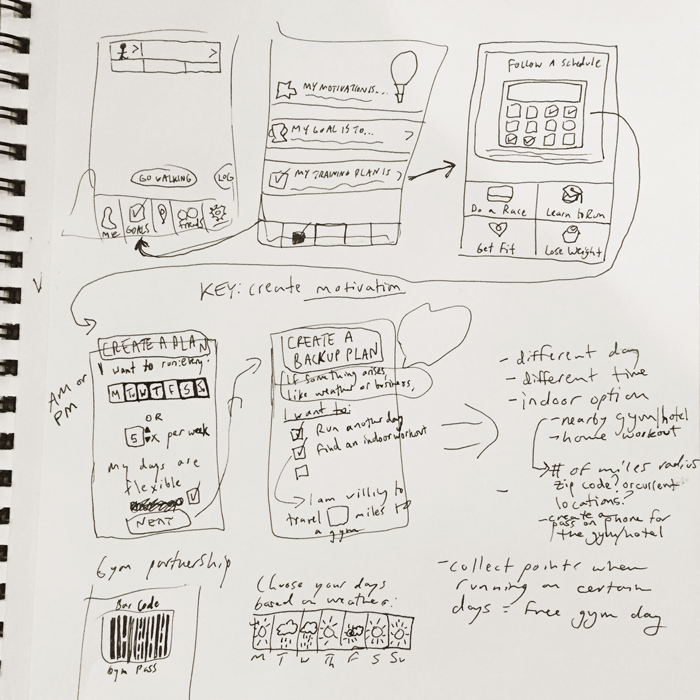 GO WALKING
LOG
ME
GOALS
friends
MY MOTIVATION IS...
MY GOAL IS TO...
MY TRAINING PLAN IS
FOLLOW A SCHEDULE
Do a Race
Learn to Run
Get Fit
Lose Weight
KEY: create motivation
AM or
PM
CREATE A PLAN
I want to run:every:
M Tu W T F S S
OR
5 x per week
My days are
flexible
NEXT
CREATE A
BACKUP PLAN
If something arises
like weather or business,
I want to:
Run another day
Find an indoor workout
I am willing to
travel miles to
a gym
- different day
- different time
- indoor option
- nearby gym/hotel
- home workout
# of miles radius
zip code? or current
locations?
- create a
pass on phone for
the gym/hotel
Gym partnership
Bar Code
Gym Pass
Choose your days
based on weather:
M T W Th F S Su
- collect points when
running on certain
days = free gym day